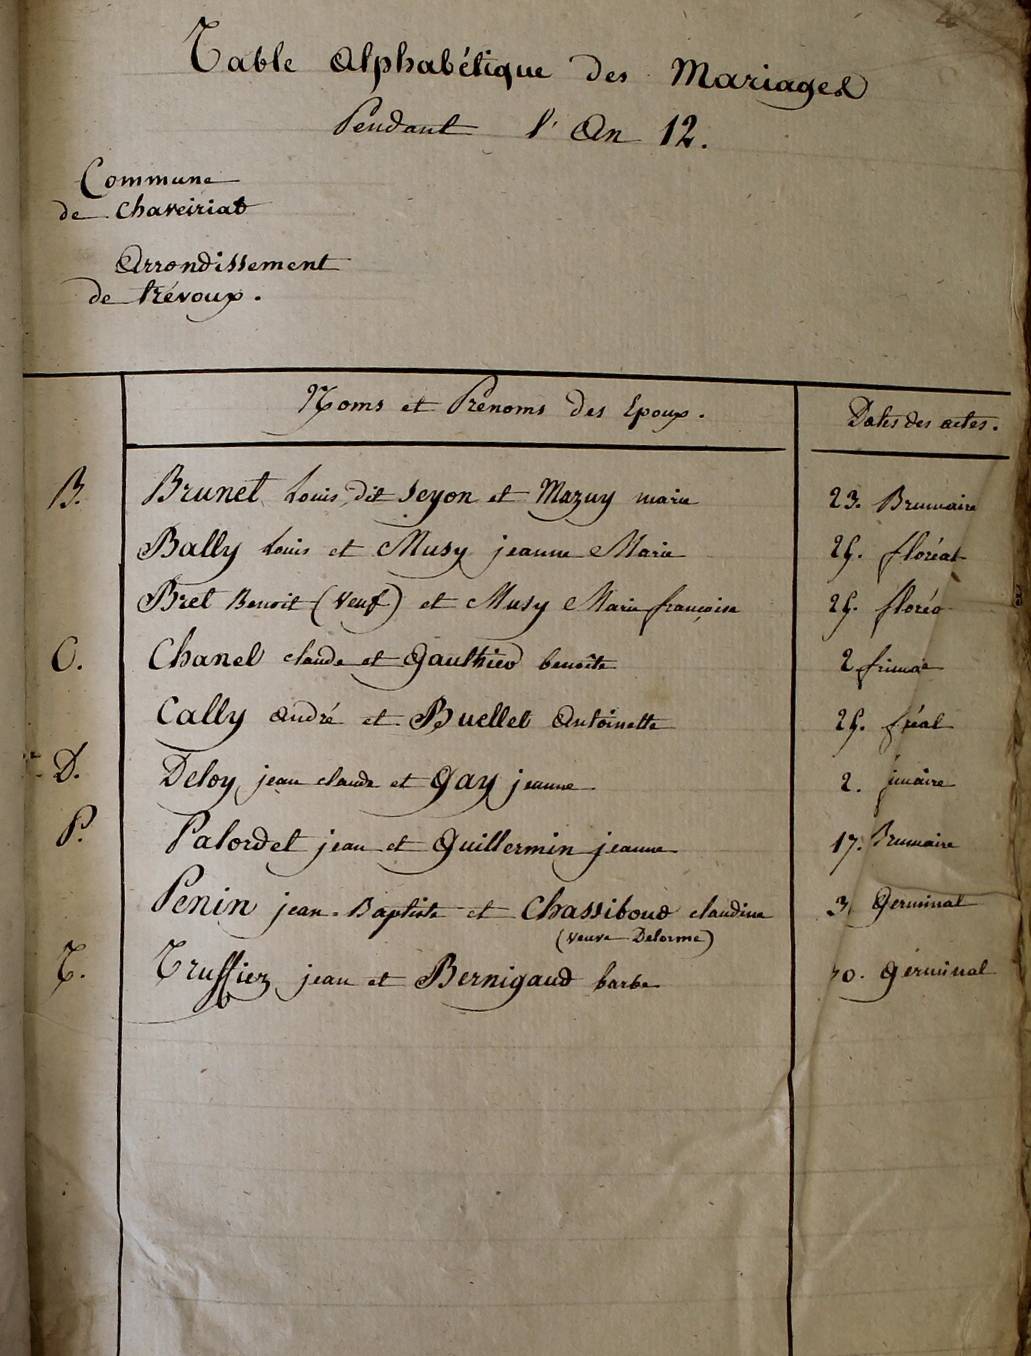 Table Alphabétique des Mariages
Pendant l'An 12.
Commune
de Chaveiriat
Arrondissement
de trévoux.
Noms et Prénoms des Epoux. Dates des actes.
B. Brunet Louis dit Seyon et Mazuy marie 23. Brumaire
Bally Louis et Musy jeanne Marie 25. floréal
Bret Benoit (Veuf) et Musy Marie françoise 25. floréa
C. Chanel claude et Gauthier benoîte 2 frimae
Cally André et Buellet Antoinette 25. fréal
D. Deloy jean claude et Gay jeanne 2. imaire
P. Palordet jean et Guillermin jeanne 17. Brumaire
Penin jean-Baptiste et Chassiboud claudine 3 Germinal
(veuve Delorme)
T. Truffier jean et Bernigaud barbe germinal